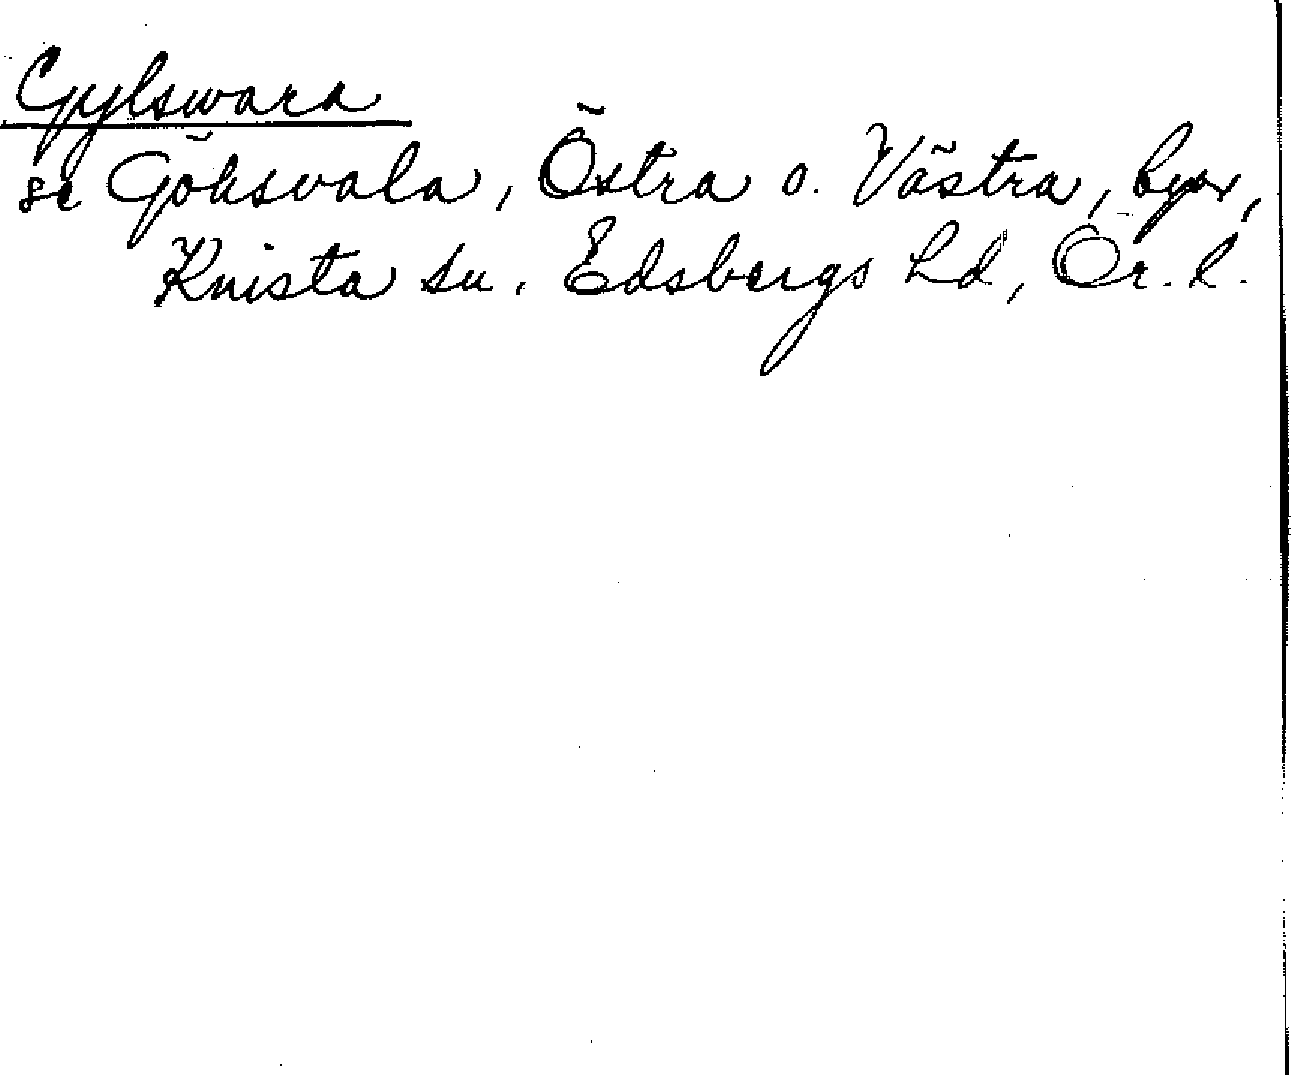 Gylswara
se Göksvala, Östra o. Västra, byar,
Knista sn. Edsbergs hd, Ör. l.